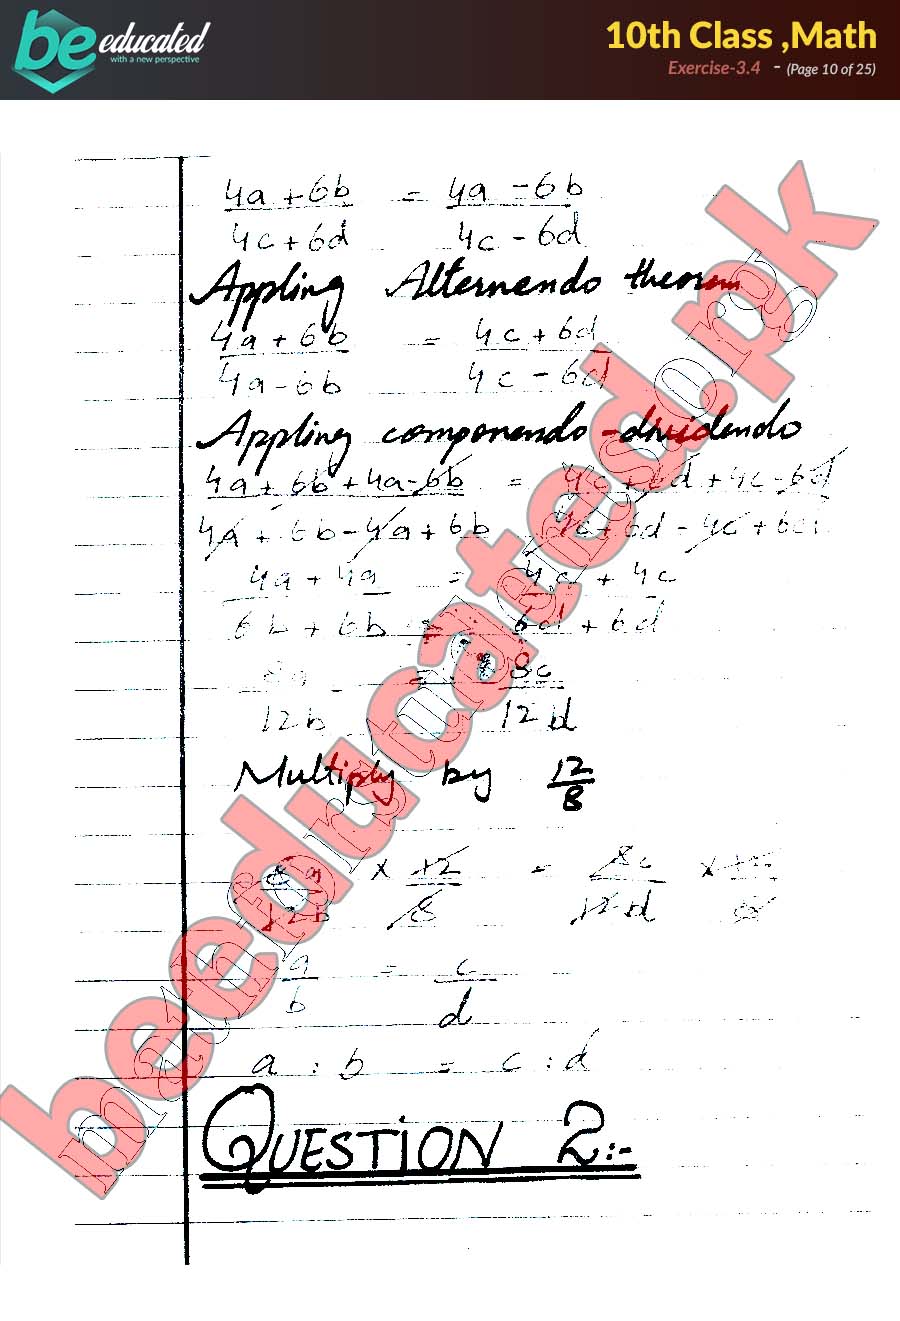 be educated
with a new perspective
10th Class ,Math
Exercise-3.4 - (Page 10 of 25)
4a + 6b = 4a - 6b
4c + 6d 4c - 6d
Appling Alternendo theorem
4a + 6b = 4c + 6d
4a - 6b 4c - 6d
Appling componendo-dividendo
4a + 6b + 4a - 6b = 4c + 6d + 4c - 6d
4a + 6b - 4a + 6b 4c + 6d - 4c + 6d
4a + 4a = 4c + 4c
6b + 6b = 6d + 6d
8a = 8c
12b 12d
Multiply by 12/8
8a × 12 = 8c × 12
12b 8 12d 8
a = c
b d
a : b = c : d
QUESTION 2:-
beeducated.pk